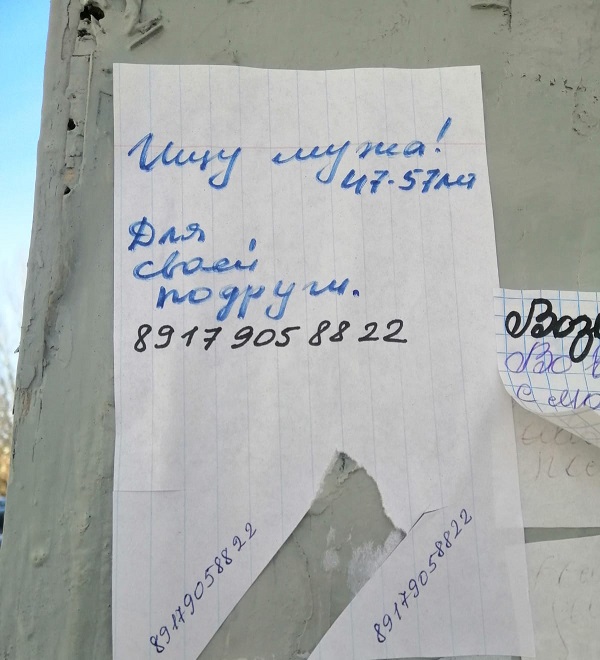 Ищу мужа!
47-57 лет
Для
своей
подруги.
8917 905 88 22
89179058822
89179058822
Возь